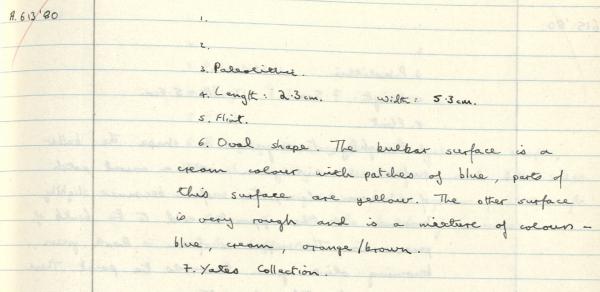 A.613'80
1.
2.
3. Paleolithic.
4. Length: 2.3cm. Width: 5.3cm.
5. Flint.
6. Oval shape. The bulbar surface is a
cream colour with patches of blue, parts of
this surface are yellow. The other surface
is very rough and is a mixture of colours -
blue, cream, orange/brown.
7. Yates Collection.